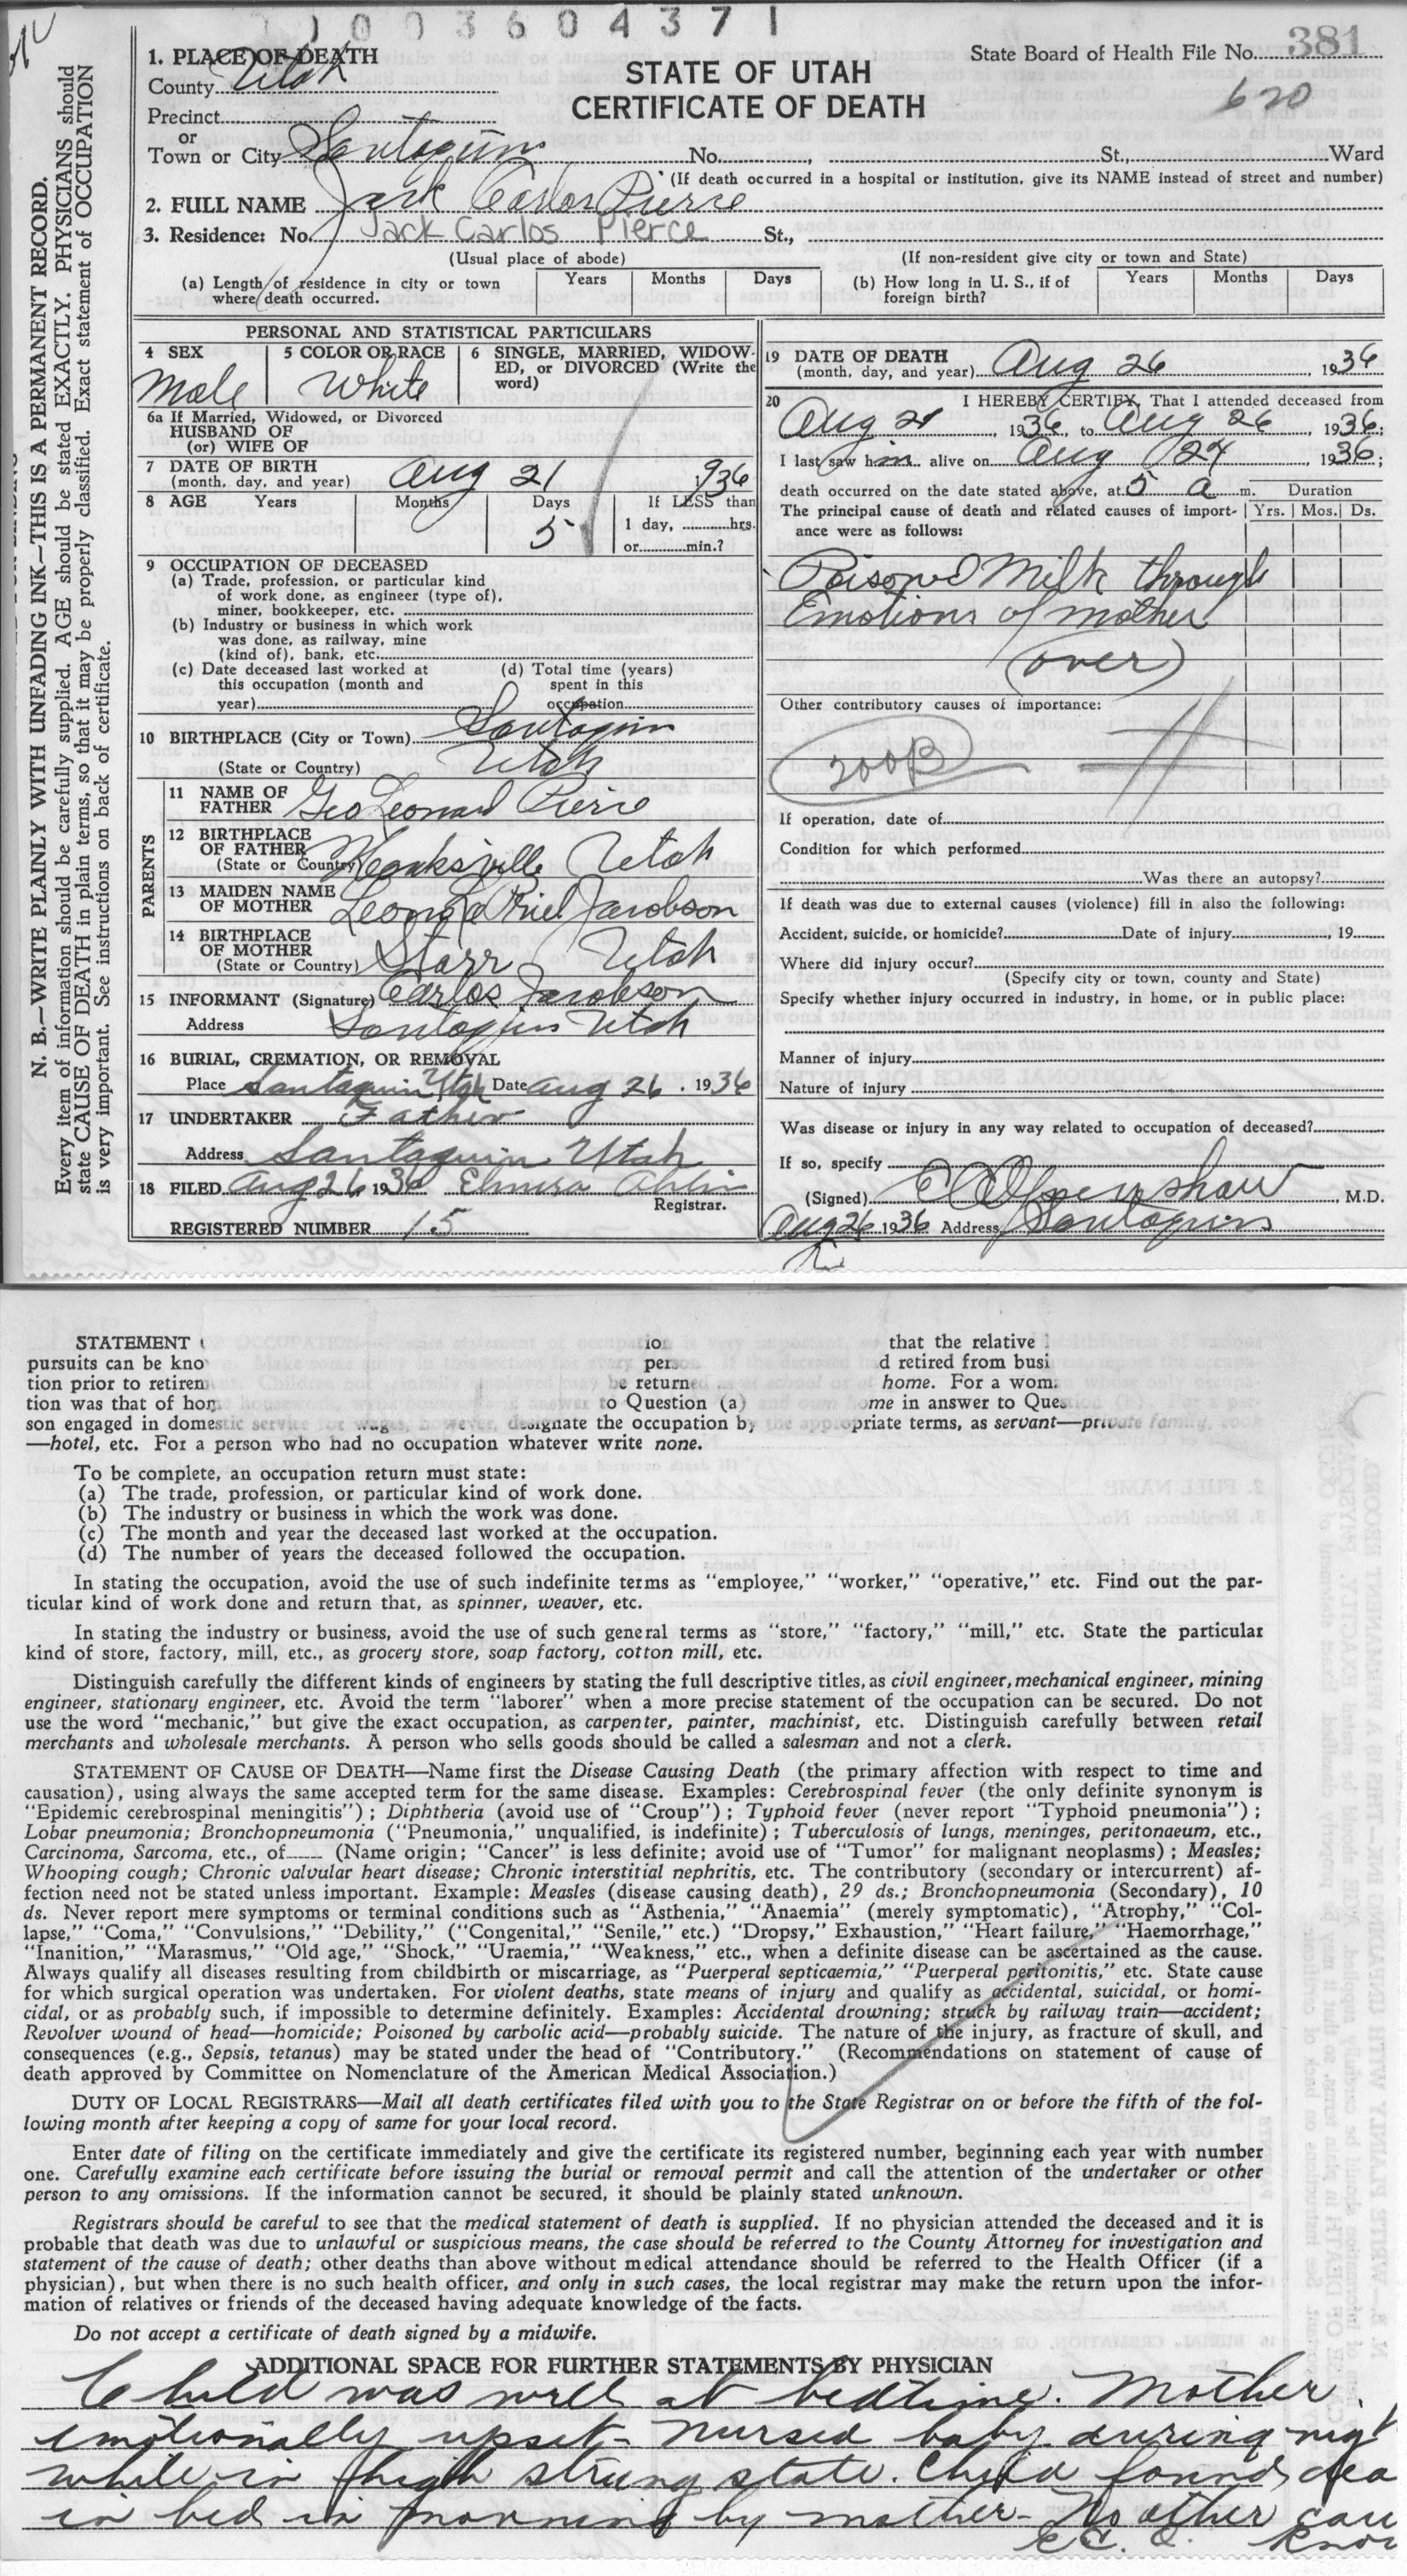 1003604371
1. PLACE OF DEATH
County Utah
State Board of Health File No. 381
STATE OF UTAH
CERTIFICATE OF DEATH
620
Precinct
or
Town or City Santaquin No. , St., Ward
(If death occurred in a hospital or institution, give its NAME instead of street and number)
2. FULL NAME Jack Carlos Pierce
3. Residence: No. Jack Carlos Pierce St.,
(Usual place of abode) (If non-resident give city or town and State)
(a) Length of residence in city or town where death occurred. Years Months Days (b) How long in U. S., if of foreign birth? Years Months Days
N. B.—WRITE PLAINLY WITH UNFADING INK—THIS IS A PERMANENT RECORD.
Every item of information should be carefully supplied. AGE should be stated EXACTLY. PHYSICIANS should
state CAUSE OF DEATH in plain terms, so that it may be properly classified. Exact statement of OCCUPATION
is very important. See instructions on back of certificate.
PERSONAL AND STATISTICAL PARTICULARS
4 SEX 5 COLOR OR RACE 6 SINGLE, MARRIED, WIDOW-
ED, or DIVORCED (Write the
word)
Male White
6a If Married, Widowed, or Divorced
HUSBAND OF
(or) WIFE OF
7 DATE OF BIRTH
(month, day, and year) Aug 21 1936
8 AGE Years Months Days If LESS than
5 1 day, hrs.
or min.?
9 OCCUPATION OF DECEASED
(a) Trade, profession, or particular kind
of work done, as engineer (type of),
miner, bookkeeper, etc.
(b) Industry or business in which work
was done, as railway, mine
(kind of), bank, etc.
(c) Date deceased last worked at (d) Total time (years)
this occupation (month and spent in this
year) occupation
10 BIRTHPLACE (City or Town) Santaquin
(State or Country) Utah
PARENTS
11 NAME OF
FATHER Geo Leonard Pierce
12 BIRTHPLACE
OF FATHER
(State or Country) Hanksville Utah
13 MAIDEN NAME
OF MOTHER Jacobson
14 BIRTHPLACE
OF MOTHER
(State or Country) Starr Utah
15 INFORMANT (Signature) Carlos Jacobson
Address Santaquin Utah
16 BURIAL, CREMATION, OR REMOVAL
Place Santaquin Utah Date Aug 26 . 1936
17 UNDERTAKER Father
Address Santaquin Utah
18 FILED Aug 26 1936 Elmira Ahlin
Registrar.
REGISTERED NUMBER 15
19 DATE OF DEATH
(month, day, and year) Aug 26 , 1936
20 I HEREBY CERTIFY, That I attended deceased from
Aug 21 , 1936, to Aug 26 , 1936;
I last saw him alive on Aug 24 , 1936;
death occurred on the date stated above, at 5 a m. Duration
The principal cause of death and related causes of import- Yrs. Mos. Ds.
ance were as follows:
Poisoned Milk through
Emotions of mother
(over)
Other contributory causes of importance:
200B
If operation, date of
Condition for which performed
Was there an autopsy?
If death was due to external causes (violence) fill in also the following:
Accident, suicide, or homicide? Date of injury , 19
Where did injury occur?
(Specify city or town, county and State)
Specify whether injury occurred in industry, in home, or in public place:
Manner of injury
Nature of injury
Was disease or injury in any way related to occupation of deceased?
If so, specify
(Signed) , M.D.
Aug 26 1936 Address Santaquin
STATEMENT io that the relative
pursuits can be kno per d retired from busi
tion prior to retirem be returned home. For a wom
tion was that of hom to Question (a) ome in answer to Ques
son engaged in domestic service for wages, however, designate the occupation by the appropriate terms, as servant—private family, cook
—hotel, etc. For a person who had no occupation whatever write none.
To be complete, an occupation return must state:
(a) The trade, profession, or particular kind of work done.
(b) The industry or business in which the work was done.
(c) The month and year the deceased last worked at the occupation.
(d) The number of years the deceased followed the occupation.
In stating the occupation, avoid the use of such indefinite terms as "employee," "worker," "operative," etc. Find out the par-
ticular kind of work done and return that, as spinner, weaver, etc.
In stating the industry or business, avoid the use of such general terms as "store," "factory," "mill," etc. State the particular
kind of store, factory, mill, etc., as grocery store, soap factory, cotton mill, etc.
Distinguish carefully the different kinds of engineers by stating the full descriptive titles, as civil engineer, mechanical engineer, mining
engineer, stationary engineer, etc. Avoid the term "laborer" when a more precise statement of the occupation can be secured. Do not
use the word "mechanic," but give the exact occupation, as carpenter, painter, machinist, etc. Distinguish carefully between retail
merchants and wholesale merchants. A person who sells goods should be called a salesman and not a clerk.
STATEMENT OF CAUSE OF DEATH—Name first the Disease Causing Death (the primary affection with respect to time and
causation), using always the same accepted term for the same disease. Examples: Cerebrospinal fever (the only definite synonym is
"Epidemic cerebrospinal meningitis"); Diphtheria (avoid use of "Croup"); Typhoid fever (never report "Typhoid pneumonia");
Lobar pneumonia; Bronchopneumonia ("Pneumonia," unqualified, is indefinite); Tuberculosis of lungs, meninges, peritonaeum, etc.,
Carcinoma, Sarcoma, etc., of...... (Name origin; "Cancer" is less definite; avoid use of "Tumor" for malignant neoplasms); Measles;
Whooping cough; Chronic valvular heart disease; Chronic interstitial nephritis, etc. The contributory (secondary or intercurrent) af-
fection need not be stated unless important. Example: Measles (disease causing death), 29 ds.; Bronchopneumonia (Secondary), 10
ds. Never report mere symptoms or terminal conditions such as "Asthenia," "Anaemia" (merely symptomatic), "Atrophy," "Col-
lapse," "Coma," "Convulsions," "Debility," ("Congenital," "Senile," etc.) "Dropsy," Exhaustion," "Heart failure," "Haemorrhage,"
"Inanition," "Marasmus," "Old age," "Shock," "Uraemia," "Weakness," etc., when a definite disease can be ascertained as the cause.
Always qualify all diseases resulting from childbirth or miscarriage, as "Puerperal septicaemia," "Puerperal peritonitis," etc. State cause
for which surgical operation was undertaken. For violent deaths, state means of injury and qualify as accidental, suicidal, or homi-
cidal, or as probably such, if impossible to determine definitely. Examples: Accidental drowning; struck by railway train—accident;
Revolver wound of head—homicide; Poisoned by carbolic acid—probably suicide. The nature of the injury, as fracture of skull, and
consequences (e.g., Sepsis, tetanus) may be stated under the head of "Contributory." (Recommendations on statement of cause of
death approved by Committee on Nomenclature of the American Medical Association.)
DUTY OF LOCAL REGISTRARS—Mail all death certificates filed with you to the State Registrar on or before the fifth of the fol-
lowing month after keeping a copy of same for your local record.
Enter date of filing on the certificate immediately and give the certificate its registered number, beginning each year with number
one. Carefully examine each certificate before issuing the burial or removal permit and call the attention of the undertaker or other
person to any omissions. If the information cannot be secured, it should be plainly stated unknown.
Registrars should be careful to see that the medical statement of death is supplied. If no physician attended the deceased and it is
probable that death was due to unlawful or suspicious means, the case should be referred to the County Attorney for investigation and
statement of the cause of death; other deaths than above without medical attendance should be referred to the Health Officer (if a
physician), but when there is no such health officer, and only in such cases, the local registrar may make the return upon the infor-
mation of relatives or friends of the deceased having adequate knowledge of the facts.
Do not accept a certificate of death signed by a midwife.
ADDITIONAL SPACE FOR FURTHER STATEMENTS BY PHYSICIAN
Child was well at bedtime. Mother
emotionally upset - nursed baby during nigh
while in high strung state. Child found dea
in bed in morning by mother - No other cau
E.C. O. know